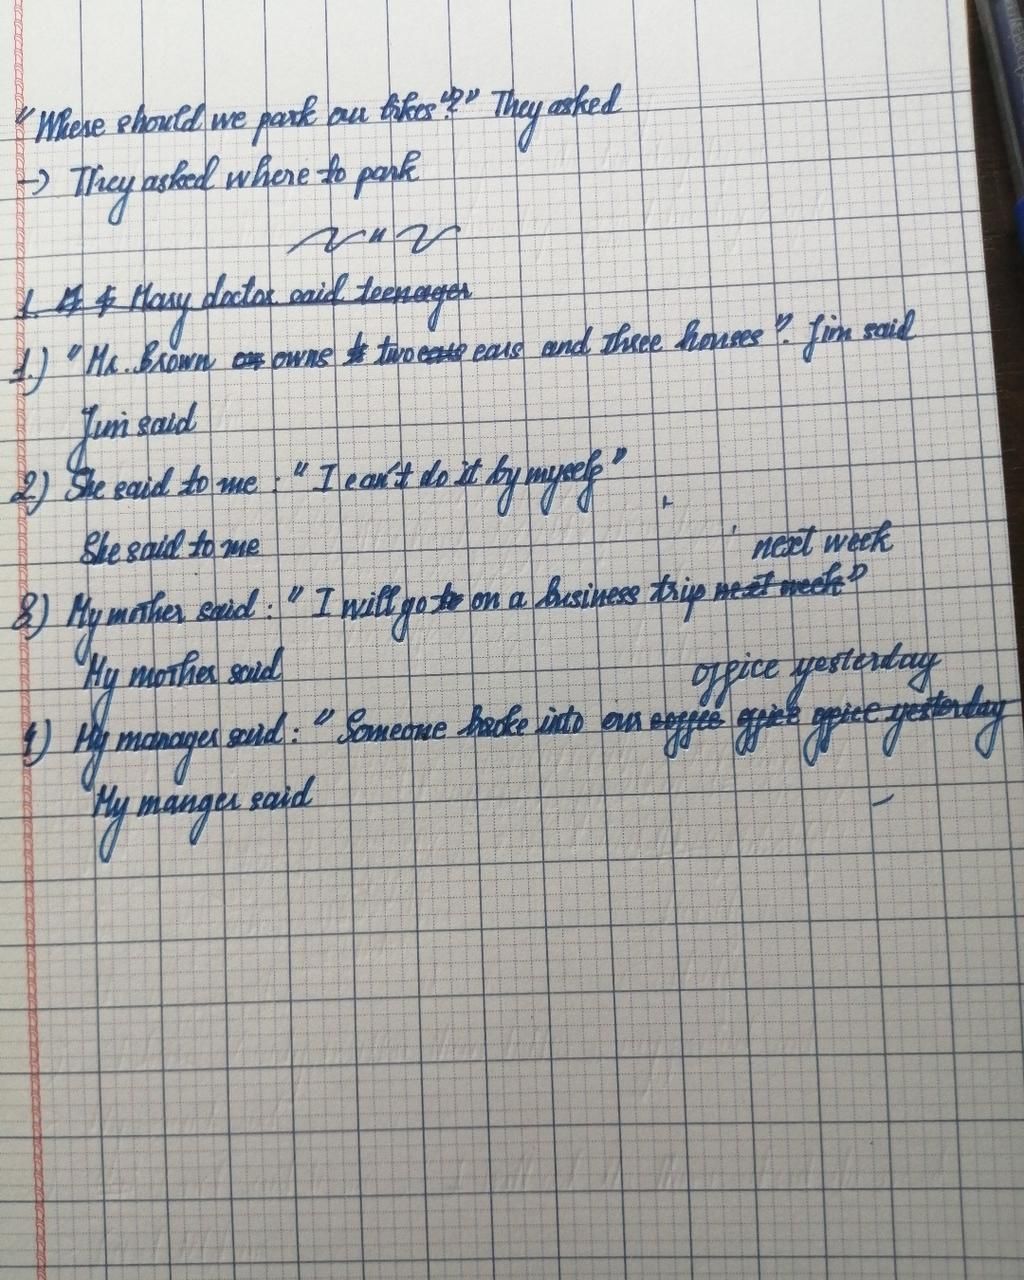 "Where should we park our bikes"?" They asked
-> They asked where to park
1. Many doctor said teenager
1.) "Mr. Brown owns two cars and three houses". Jim said
Jim said
2) She said to me : "I can't do it by myself"
She said to me
next week
3) My mother said : "I will go to on a business trip next week"
My mother said
office yesterday
4) My manager said : "Someone broke into our office office yesterday
My manger said